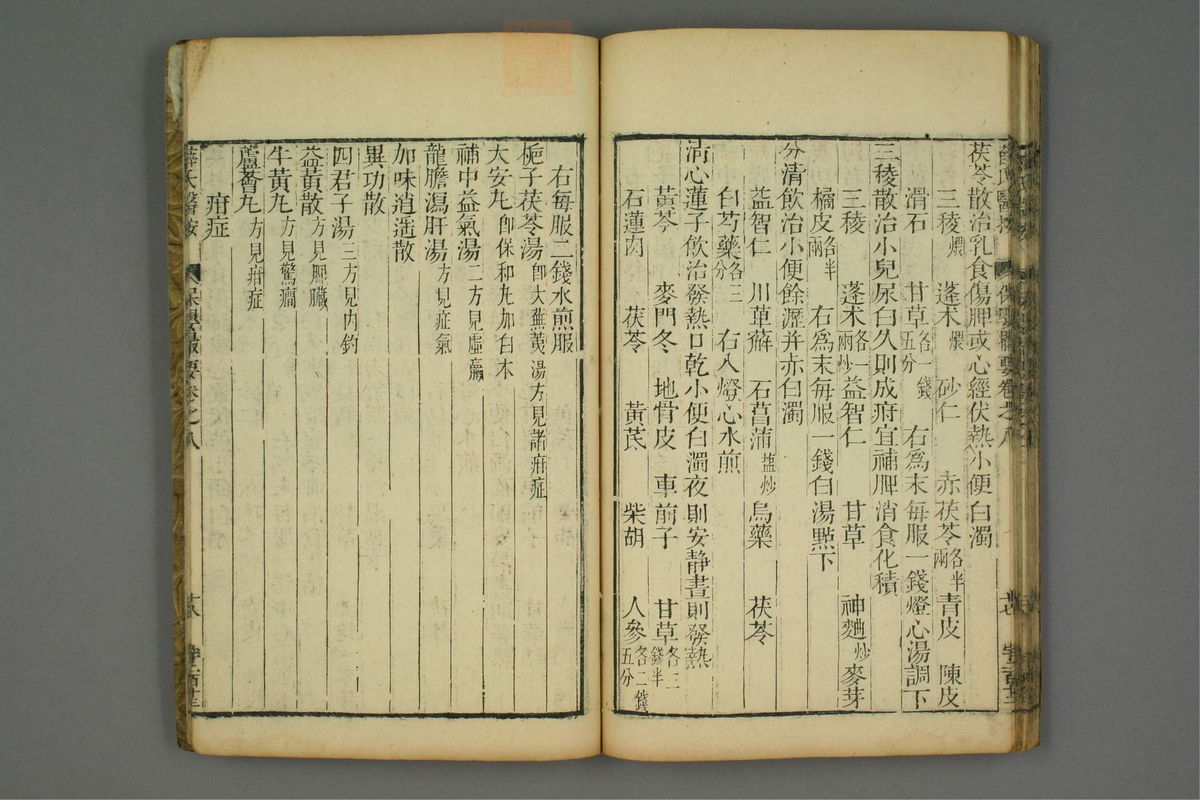 茯苓散治乳食傷脾或心經伏熱小便白濁
三稜煨 蓬朮煨 砂仁 赤茯苓各半兩 青皮 陳皮
滑石 甘草各一錢五分 右爲末每服一錢燈心湯調下
三稜散治小兒尿白久則成疳宜補脾消食化積
三稜 蓬朮各一兩炒 益智仁 甘草 神麯炒 麥芽
橘皮各半兩 右爲末每服一錢白湯㸃下
分清飲治小便餘瀝并赤白濁
益智仁 川萆薢 石菖蒲鹽炒 烏藥 茯苓
白芍藥各三分 右入燈心水煎
清心蓮子飲治發熱口乾小便白濁夜則安靜晝則發熱
黃芩 麥門冬 地骨皮 車前子 甘草各二錢半
石蓮肉 茯苓 黃芪 柴胡 人參各二錢五分
右每服二錢水煎服
梔子茯苓湯即大蕪荑湯方見諸疳症
大安丸即保和丸加白术
補中益氣湯二方見虛羸
龍膽瀉肝湯方見疝氣
加味逍遥散
異功散
四君子湯三方見内釣
益黃散方見脾臟
牛黃丸方見驚癇
蘆薈丸方見疳症
疳症
薛氏醫按 保嬰撮要卷之八